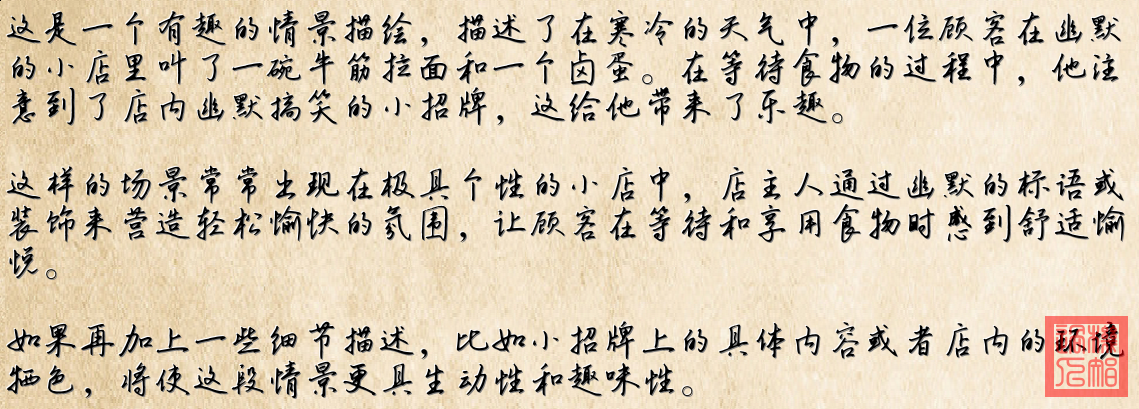 这是一个有趣的情景描绘，描述了在寒冷的天气中，一位顾客在幽默
的小店里叫了一碗牛筋拉面和一个卤蛋。在等待食物的过程中，他注
意到了店内幽默搞笑的小招牌，这给他带来了乐趣。
这样的场景常常出现在极具个性的小店中，店主人通过幽默的标语或
装饰来营造轻松愉快的氛围，让顾客在等待和享用食物时感到舒适愉
悦。
如果再加上一些细节描述，比如小招牌上的具体内容或者店内的环境
牺色，将使这段情景更具生动性和趣味性。